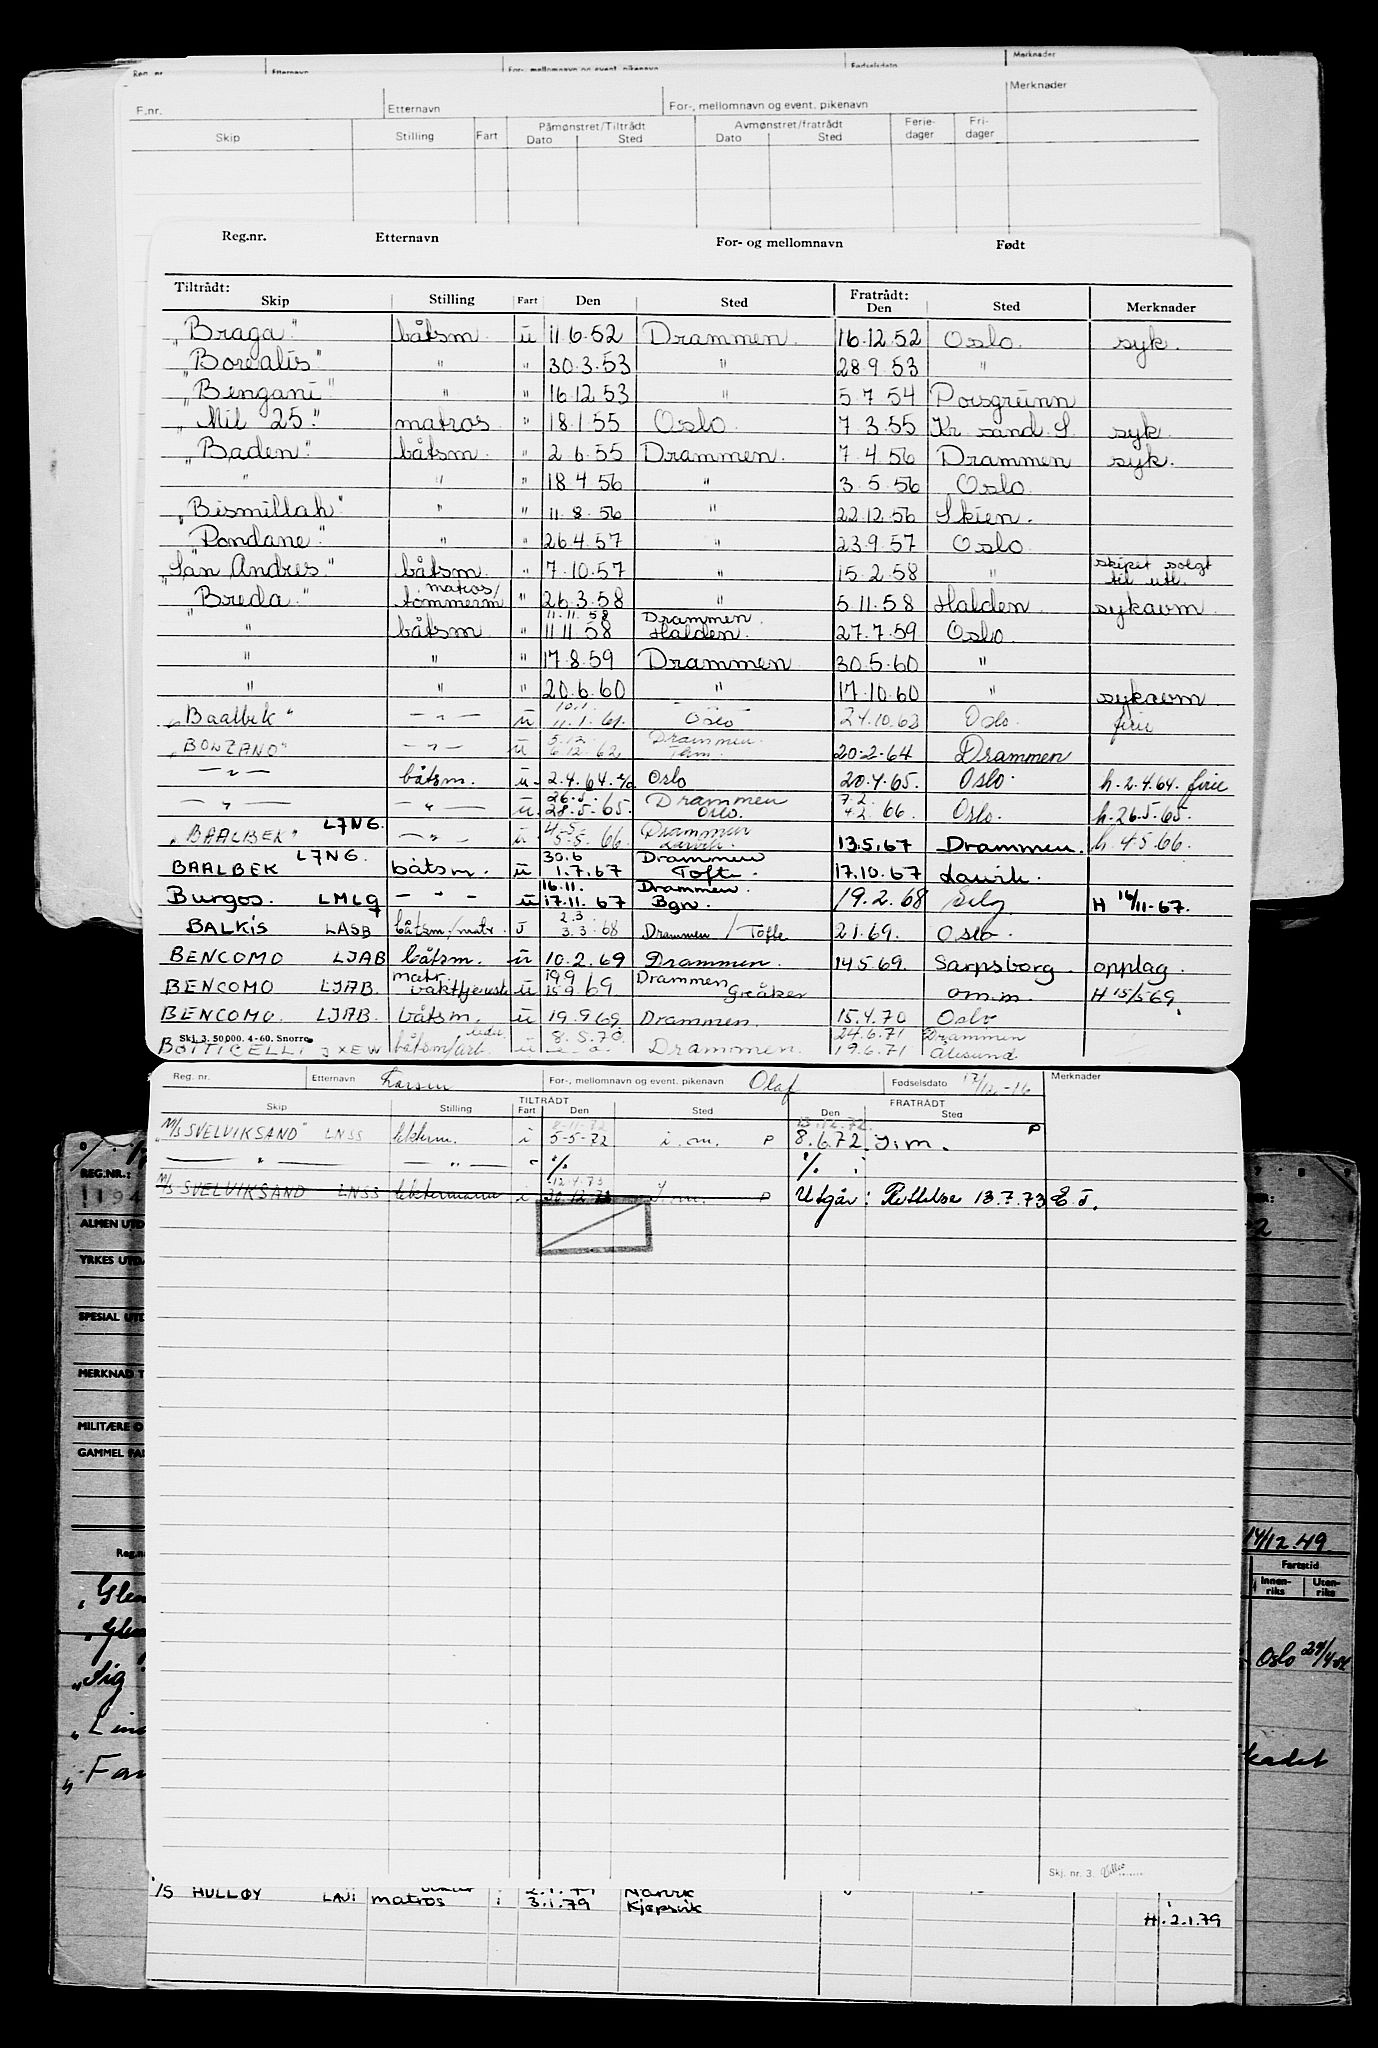 Reg. nr. Etternavn For-, mellomnavn og event. pikenavn Fødselsdato Merknader
F.nr. Etternavn For-, mellomnavn og event. pikenavn Merknader
Skip Stilling Fart Påmønstret/Tiltrådt Avmønstret/fratrådt Ferie- dager Fri- dager
Dato Sted Dato Sted
Reg.nr. Etternavn For- og mellomnavn Født
Tiltrådt: Fratrådt:
Skip Stilling Fart Den Sted Den Sted Merknader
„Braga" båtsm. u 11.6.52 Drammen 16.12.52 Oslo. syk.
„Borealis" " " 30.3.53 " 28.9.53 "
„Bengani" " " 16.12.53 " 5.7.54 Porsgrunn
„Mil 25." matros " 18.1.55 Oslo 7.3.55 Kr.sand S. syk.
„Baden" båtsm. " 2.6.55 Drammen. 7.4.56 Drammen syk.
" " " 18.4.56 " 3.5.56 Oslo
„Bismillah" " " 11.8.56 " 22.12.56 Skien.
„Rondane" " " 26.4.57 " 23.9.57 Oslo
„San Andres" båtsm. " 7.10.57 " 15.2.58 " skipet solgt til utl.
„Breda" matros/ tømmerm " 26.3.58 " 5.11.58 Halden sykavm.
" båtsm. " 11.11.58 11.11.58 Drammen. Halden. 27.7.59 Oslo.
" " " 17.8.59 Drammen 30.5.60 "
" " " 20.6.60 " 17.10.60 " sykavm
„Baalbek" — " — u 10.1. 11.1.61. Oslo 24.10.62 Oslo. ferie
„BOLZANO" — " — u 5.12. 6.12.62 Drammen. 20.2.64 Drammen
— " — båtsm. u. 2.4.64. Oslo 20.4.65. Oslo. h.2.4.64. ferie
— " — — " — u. 26.5. 28.5.65. Drammen Oslo. 7.2. 4.2.66. Oslo. h.26.5.65.
„BAALBEK" L7NG. — " u 4.5. 5.5.66. Drammen Larvik. 13.5.67 Drammen. h.4.5.66.
BAALBEK L7NG. båtsm. u 30.6 1.7.67 Drammen Tofte. 17.10.67 Larvik.
Burgos. LMLG — " — u 16.11. 17.11.67 Drammen. Bgn. 19.2.68 H 16/11-67.
BALKIS LASB båtsm./matr. u 2.3 3.3.68 Drammen / Tofte 2.1.69. Oslo.
BENCOMO LJAB båtsm. u 10.2.69 Drammen. 14.5.69. Sarpsborg opplag.
BENCOMO LJAB. matr. vakttjeneste u 19.9 15.9.69 Drammen Greåker omm. H 15/5 69.
BENCOMO. LJAB. båtsm. u 19.9.69. Drammen. 15.4.70 Oslo
Skj. 3. 50.000. 4-60. Snorre
BOTTICELLI JXEW båtsm/arb.leder u 8.5.70. Drammen. 24.6.71 19.6.71 Drammen Ålesund
Reg. nr. Etternavn Larsen For-, mellomnavn og event. pikenavn Olaf Fødselsdato 17/12.-16 Merknader
TILTRÅDT FRATRÅDT
Skip Stilling Fart Den Sted Den Sted
„M/S SVELVIKSAND" LNSS lekterm. i 8-11-72 5-5-72 i.m. P 13.12.72. 8.6.72. I.m. P
— " — — " — - %. %.
M/S SVELVIKSAND LNSS lektermann i 12.4.73 20.12.72 I.m. P Utgår: Rettelse 13.7.73 E J.
REG.NR.:
1194
ALMEN UTD
YRKES UTDA
SPESIAL UTD
MERKNAD T
MILITÆRE O
GAMMEL FA
14/12.49.
Reg.nr Fartstid
Innen- riks Uten- riks
„Glen
„Glen
„Sig Oslo
„Lin
„Fan kadet
Skj. nr. 3.
/S HULLØY LAUI matros i 2.1.79 3.1.79 Narvik Kjøpsvik H.2.1.79